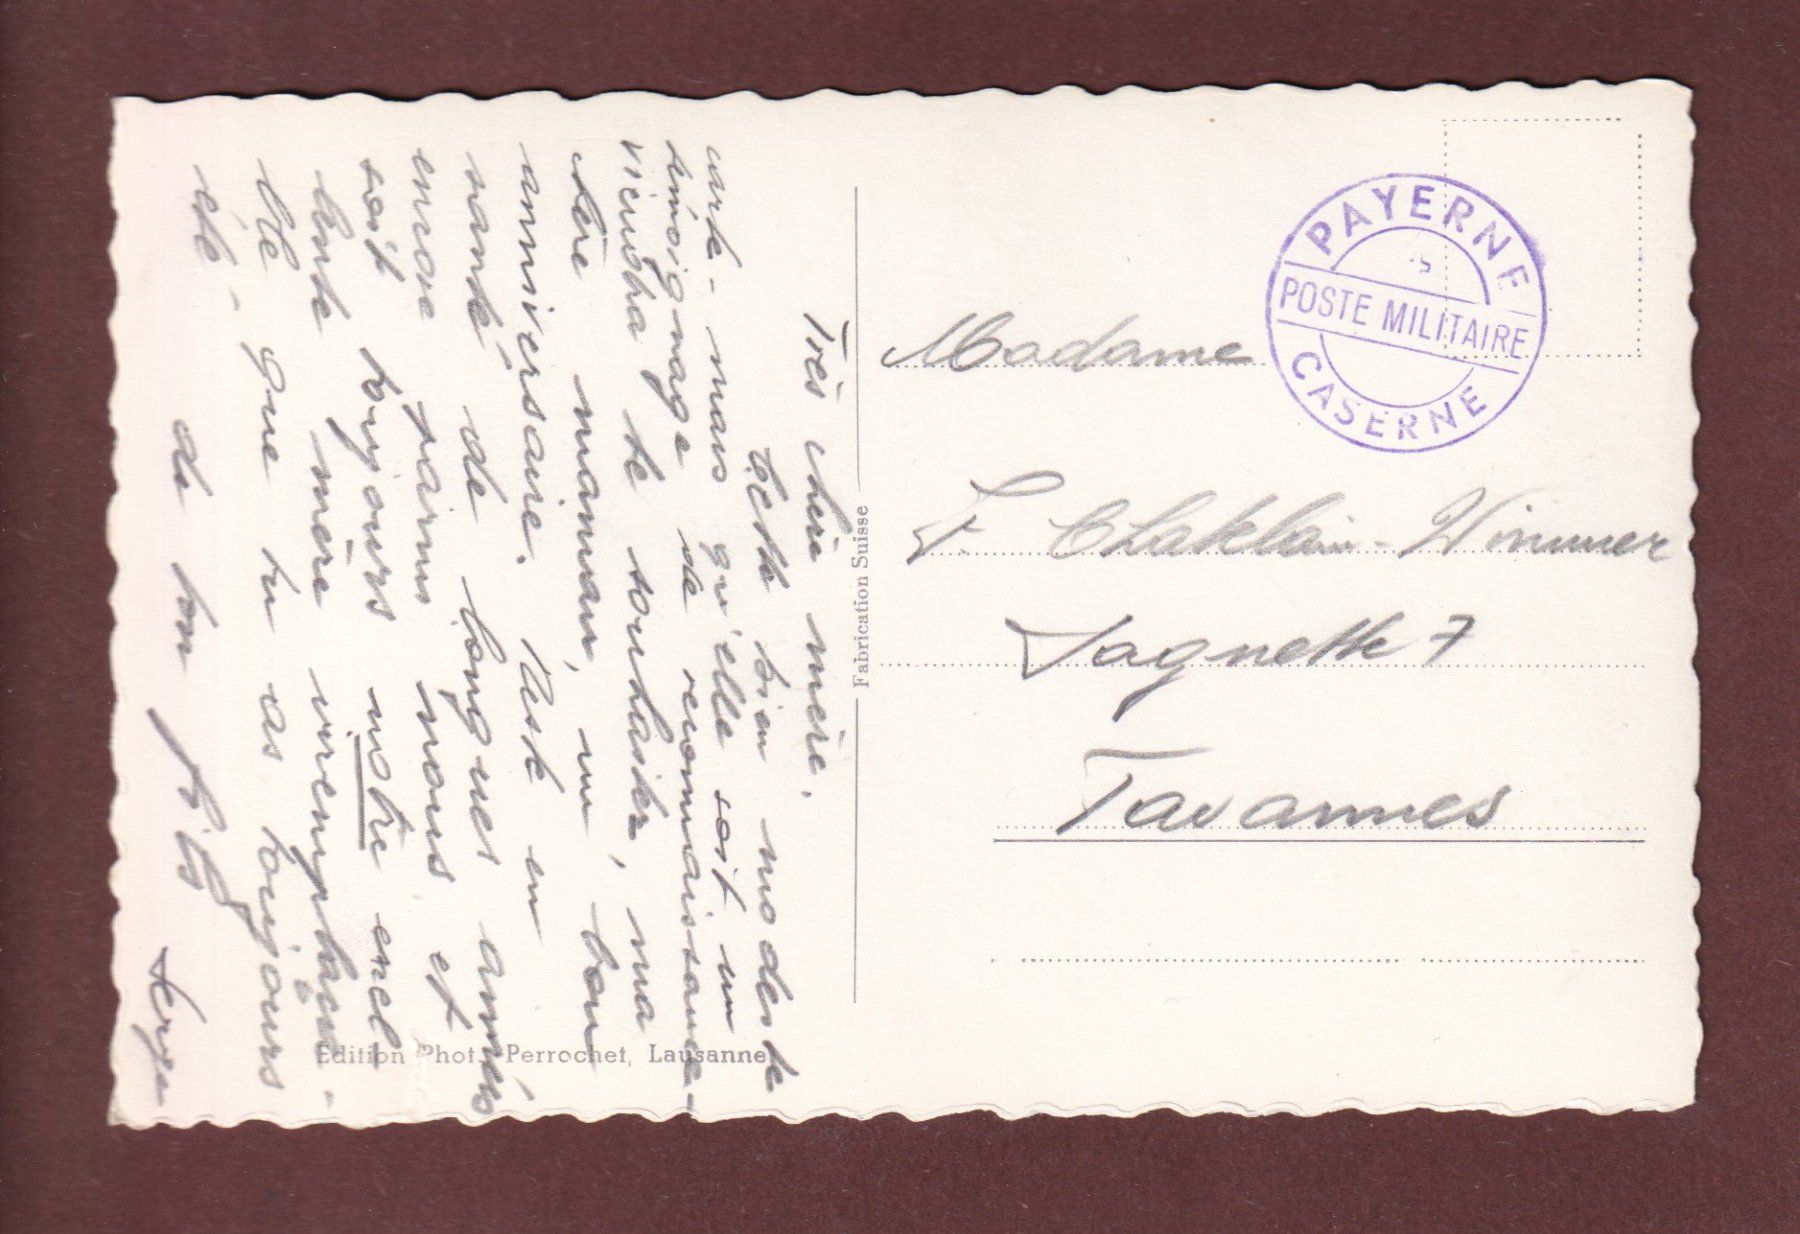 Très chère mère.
Cette bien modeste
carte - mais qu'elle soit un
témoignage de reconnaissance -
viendra te souhaiter, ma
chère maman, un bon
anniversaire. Reste en
santé de longues années
encore parmi nous et
soit toujours notre
mère
que tu as toujours
été -
de ton fils
Serge
Fabrication Suisse
Edition Phot. Perrochet, Lausanne
PAYERNE
POSTE MILITAIRE
CASERNE
Madame
F. Châtelain-Wimmer
7
Tavannes